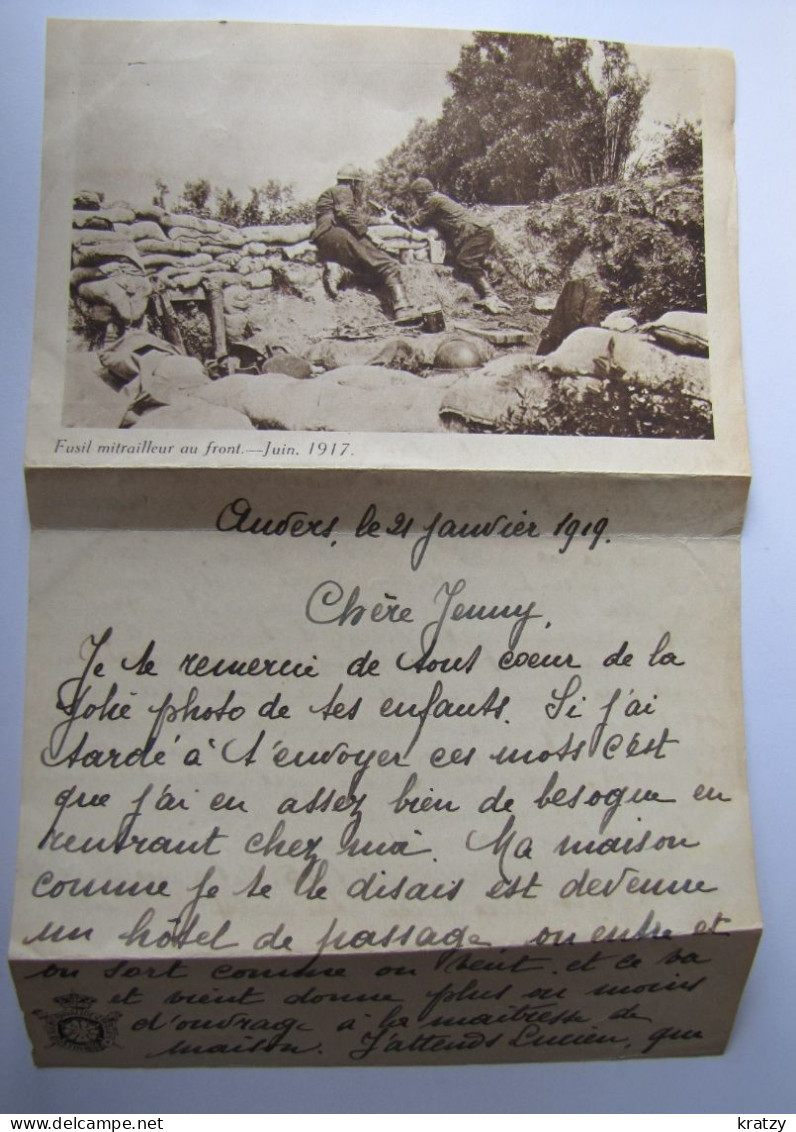 Fusil mitrailleur au front.—Juin. 1917.
Anvers, le 21 janvier 1919.
Chère Jenny,
Je te remercie de tout coeur de la
jolie photo de tes enfants. Si j'ai
tardé à t'envoyer ces mots c'est
que j'ai eu assez bien de besogne en
rentrant chez moi. Ma maison
comme je te le disais est devenue
un hôtel de passage on entre et
on sort comme on veut, et ce va
et vient donne plus ou moins
d'ouvrage à la maîtresse de
maison. J'attends Lucien, que
delcampe.net
kratzy